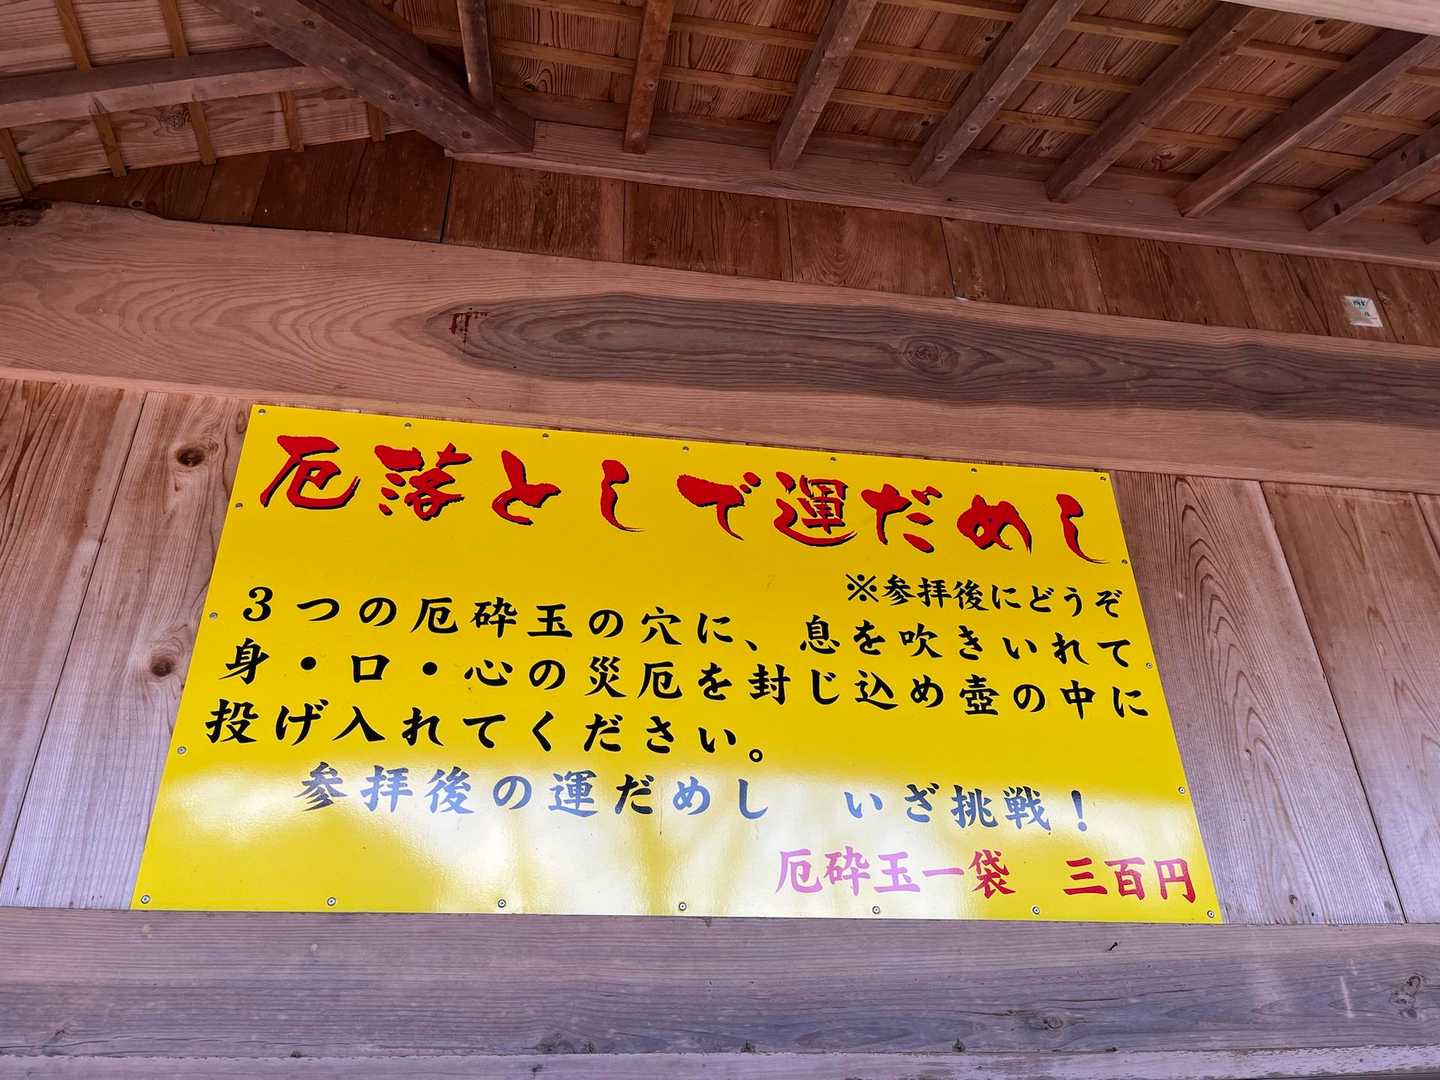 厄落としで運だめし
※参拝後にどうぞ
3つの厄砕玉の穴に、息を吹きいれて
身・口・心の災厄を封じ込め壺の中に
投げ入れてください。
参拝後の運だめし　いざ挑戦！
厄砕玉一袋　三百円